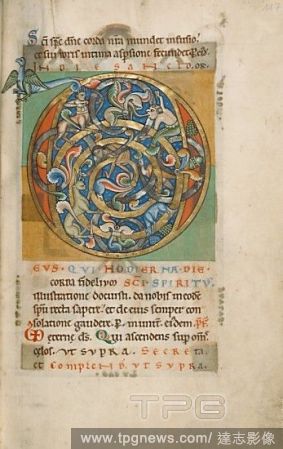 Sc̄i sp̄c dn̄e corda nr̄a mundet infusio.
et sui roris intima aspsione fecundet. P. eid.
IN DIE SANCTO. OR.
EVS · QVI · HODIERNA · DIE
corda fideliũ SC̄I · SPIRITV̄
illustratione docuisti. da nobis in eodē
sp̄u recta sapere. et de eius semper con
solatione gaudere. P. eiusdem
eterne ds̄. Qui ascendens sup om̄s
celos. VT SVPRA. SECRETA.
et COMPLEND. VT SVPRA.
117
TPG
www.tpgnews.com / 達志影像